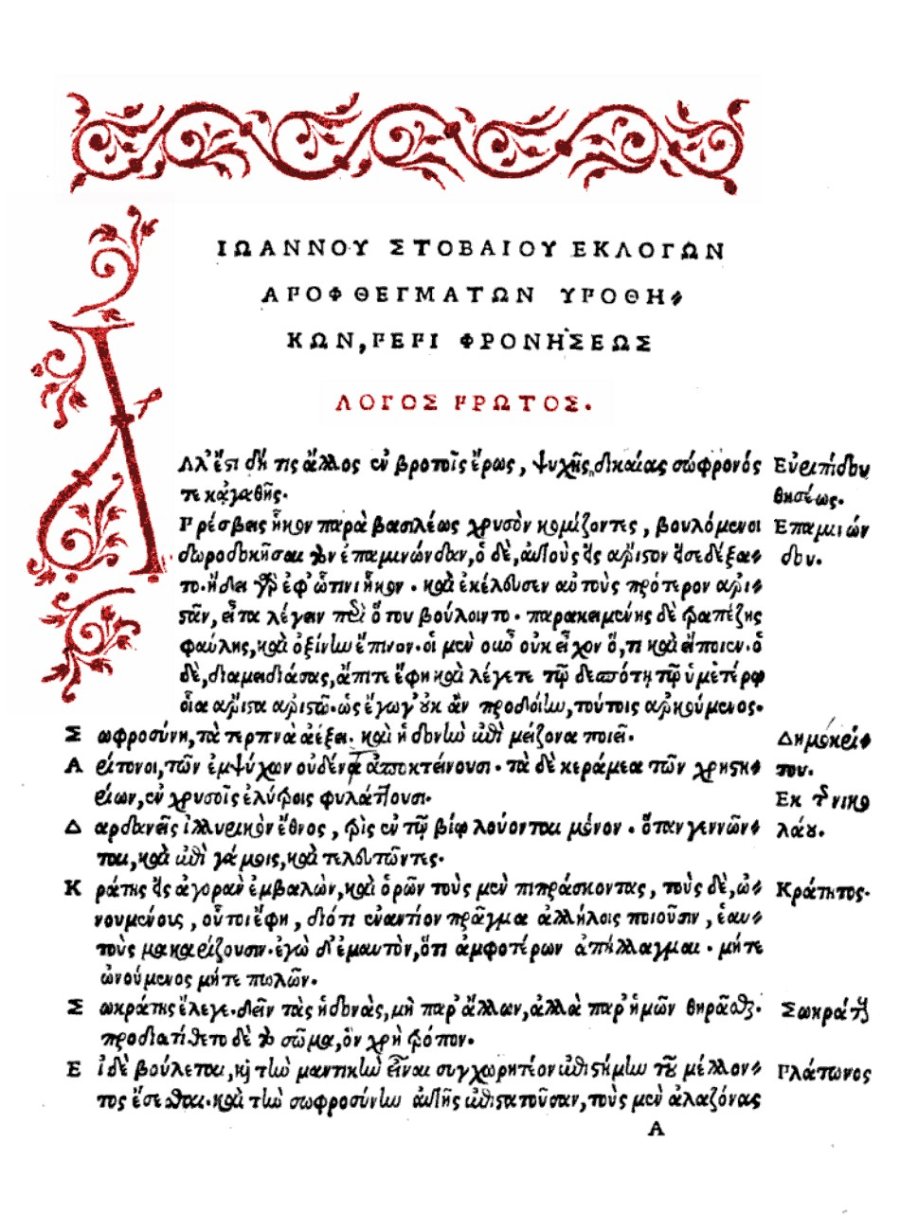 ΙΩΑΝΝΟΥ ΣΤΟΒΑΙΟΥ ΕΚΛΟΓΩΝ
ΑΠΟΦΘΕΓΜΑΤΩΝ ΥΠΟΘΗ-
ΚΩΝ, ΠΕΡΙ ΦΡΟΝΗΣΕΩΣ
ΛΟΓΟΣ ΠΡΩΤΟΣ.
Α
Λλ' ἔστι δή τις ἄλλος ἐν βροτοῖς ἔρως, ψυχῆς δικαίας σώφρονός
Εὐριπίδου
τε κἀγαθῆς.
θησέως.
Πρέσβεις ἧκον παρὰ βασιλέως χρυσὸν κομίζοντες, βουλόμενοι
Επαμινών
δωροδοκῆσαι τὸν ἐπαμινώνδαν, ὁ δὲ, αὐτοὺς εἰς ἄριστον εἰσεδέξα-
δου.
το. ᾔδει γὰρ ἐφ' ὧτινι ἧκον. καὶ ἐκέλευσεν αὐτοὺς πρότερον ἀρι-
στᾶν, εἶτα λέγειν περὶ ὅτου βούλοιντο. παρακειμένης δὲ τραπέζης
φαύλης, καὶ ὀξίνην ἔπινον. οἱ μὲν οὖν οὐκ εἶχον ὅ,τι καὶ εἴποιεν. ὁ
δὲ, διαμειδιάσας, ἄπιτε ἔφη καὶ λέγετε τῷ δεσπότῃ τῷ ὑμετέρῳ
οἷα ἄριστα ἀριστῶ. ὡς ἔγωγ' οὐκ ἂν προδοίην, τούτοις ἀρκούμενος.
Σ ωφροσύνη, τὰ τερπνὰ ἀέξει. καὶ ἡδονὴν ἐπὶ μείζονα ποιεῖ.
Δημοκρί-
Α ρίτονοι, τῶν ἐμψύχων οὐδένα ἀποκτείνουσι. τὰ δὲ κεράμεα τῶν χρηστη-
του.
ρίων, ἐν χρυσοῖς ἐλύτροις φυλάττουσι.
Εκ τοῦ νικο
Δ αρδανεῖς ἰλλυρικὸν ἔθνος, τρὶς ἐν τῷ βίῳ λούονται μόνον. ὅταν γεννῶν-
λάου.
ται, καὶ ἐπὶ γάμοις, καὶ τελευτῶντες.
Κ ράτης εἰς ἀγορὰν ἐμβαλὼν, καὶ ὁρῶν τοὺς μὲν πιπράσκοντας, τοὺς δὲ, ὠ-
Κράτητος.
νουμένοις, οὗτοι ἔφη, διότι ἐναντίον πρᾶγμα ἀλλήλοις ποιοῦσιν, ἑαυ-
τοὺς μακαρίζουσιν. ἐγὼ δ' ἐμαυτὸν, ὅτι ἀμφοτέρων ἀπήλλαγμαι. μήτε
ὠνούμενος μήτε πωλῶν.
Σ ωκράτης ἔλεγε. δεῖν τὰς ἡδονὰς, μὴ παρ' ἄλλων, ἀλλὰ παρ' ἡμῶν θηρᾶσθαι.
Σωκράτης
προδιατίθετο δὲ τὸ σῶμα, ὃν χρὴ τρόπον.
Ε ἰ δὲ βούλεται, καὶ τὴν μαντικὴν εἶναι συγχωρητέον ἐπιστήμην τοῦ μέλλον-
Πλάτωνος
τος ἔσεσθαι. καὶ τὴν σωφροσύνην αὐτῆς ἐπιστατοῦσαν, τοὺς μὲν ἀλαζόνας
Α